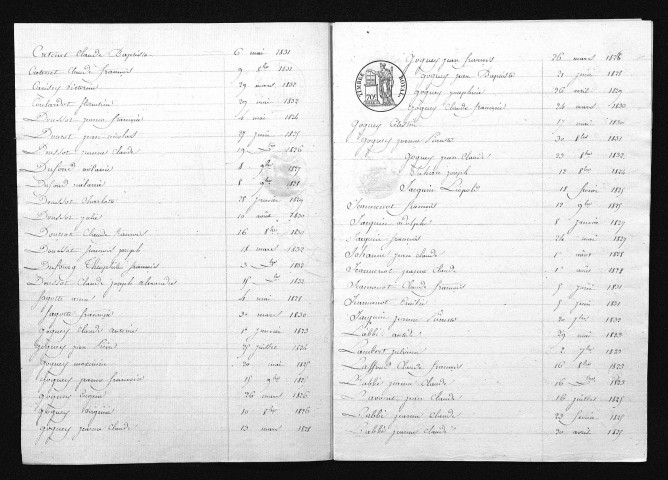 Cretenet Claude Baptiste 6 mai 1831
Cretenet Claude françois 9 8bre 1831
Victorine 29 mars 1832
florentin 29 mai 1832
Doussot jeanne françoise 4 mai 1824
Doussot jean nicolas 27 juin 1825
Doussot jeanne claude 19 Xbre 1826
Dufourd mélanie 8 9bre 1827
Dufourd mélanie 8 9bre 1828
Doussot Charlotte 28 janvier 1829
Doussot julie 10 août 1830
Doussot Claude françois 16 8bre 1830
Doussot françois joseph 18 mars 1832
Dufourg Théophile françois 3 Xbre 1832
Doussot Claude joseph alexandre 15 Xbre 1832
fayotte anne 4 mai 1828
fayotte françois 30 mars 1830
Goguey Claude antoine 1er janvier 1823
Goguey jean Pierre 25 juillet 1824
Goguey 20 mai 1825
Goguey jeanne françoise 15 9bre 1825
Goguey Eugene 26 mars 1826
Goguey 10 8bre 1826
Goguey jeanne Claude 13 mars 1828
TIMBRE ROYAL
Goguey jean françois 26 mars 1828
Goguey jean Baptiste 21 juin 1828
Goguey josephine 26 avril 1829
Goguey Claude françoise 24 mars 1830
Goguey Célestin 17 mai 1830
Goguey jeanne Pierrette 30 8bre 1831
Goguey jean claude 23 8bre 1832
joseph 12 8bre 1824
Jacquin Léopold 18 février 1825
Jeannenot françois 12 9bre 1825
Jacquin adolphe 8 janvier 1827
Jacquin françois 24 mai 1827
jean claude 1er août 1828
Jeannenot jeanne Claude 1er août 1828
Jeannenot Claude françois 5 juin 1831
Jeannenot Emilie 5 juin 1831
Jacquin jeanne Pierrette 20 1832
Labbé 29 mai 1823
Lambert 2 7bre 1823
Laffond Claude françois 16 8bre 1823
Labbé jeanne Claude 16 Xbre 1823
jean Claude 16 juillet 1825
Labbé jeanne Claude 22 février 1825
Labbé jeanne Claude 30 avril 1825